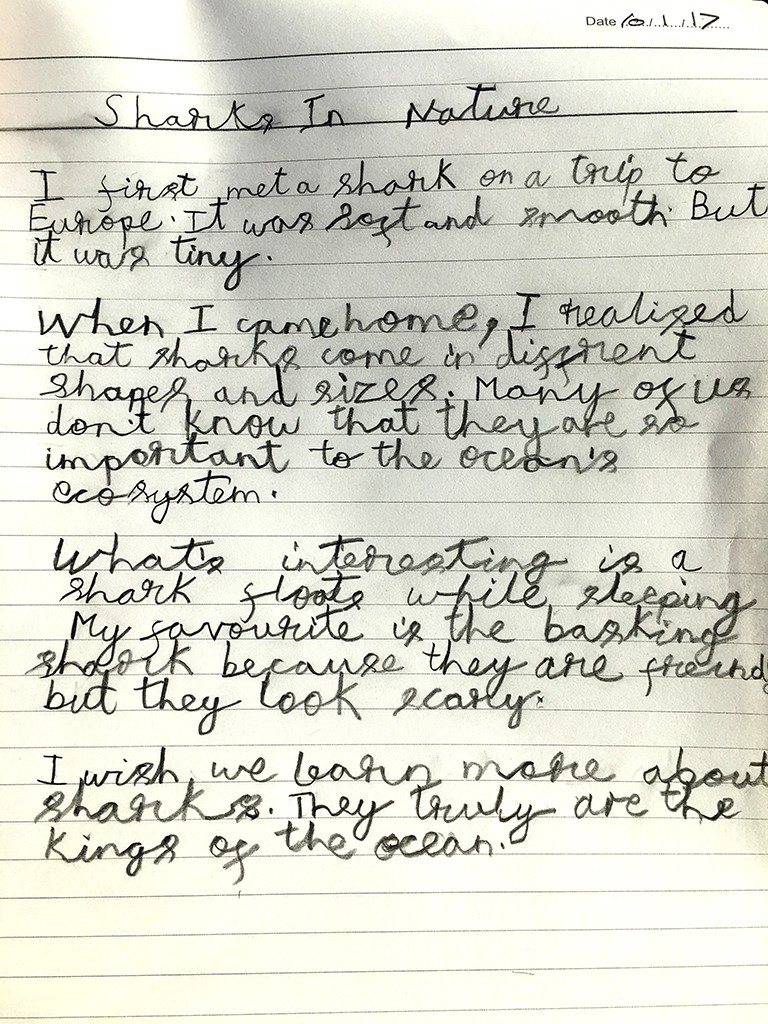 Date 10/1/17
Sharks In Nature
I first met a shark on a trip to
Europe. It was soft and smooth. But
it was tiny.
When I came home, I realised
that sharks come in diffrent
shapes and sizes. Many of us
don't know that they are so
important to the ocean's
ecosystem.
What's interesting is a
shark floats while sleeping
My favourite is the basking
shark because they are freind
but they look scary.
I wish we learn more about
sharks. They truly are the
Kings of the ocean.